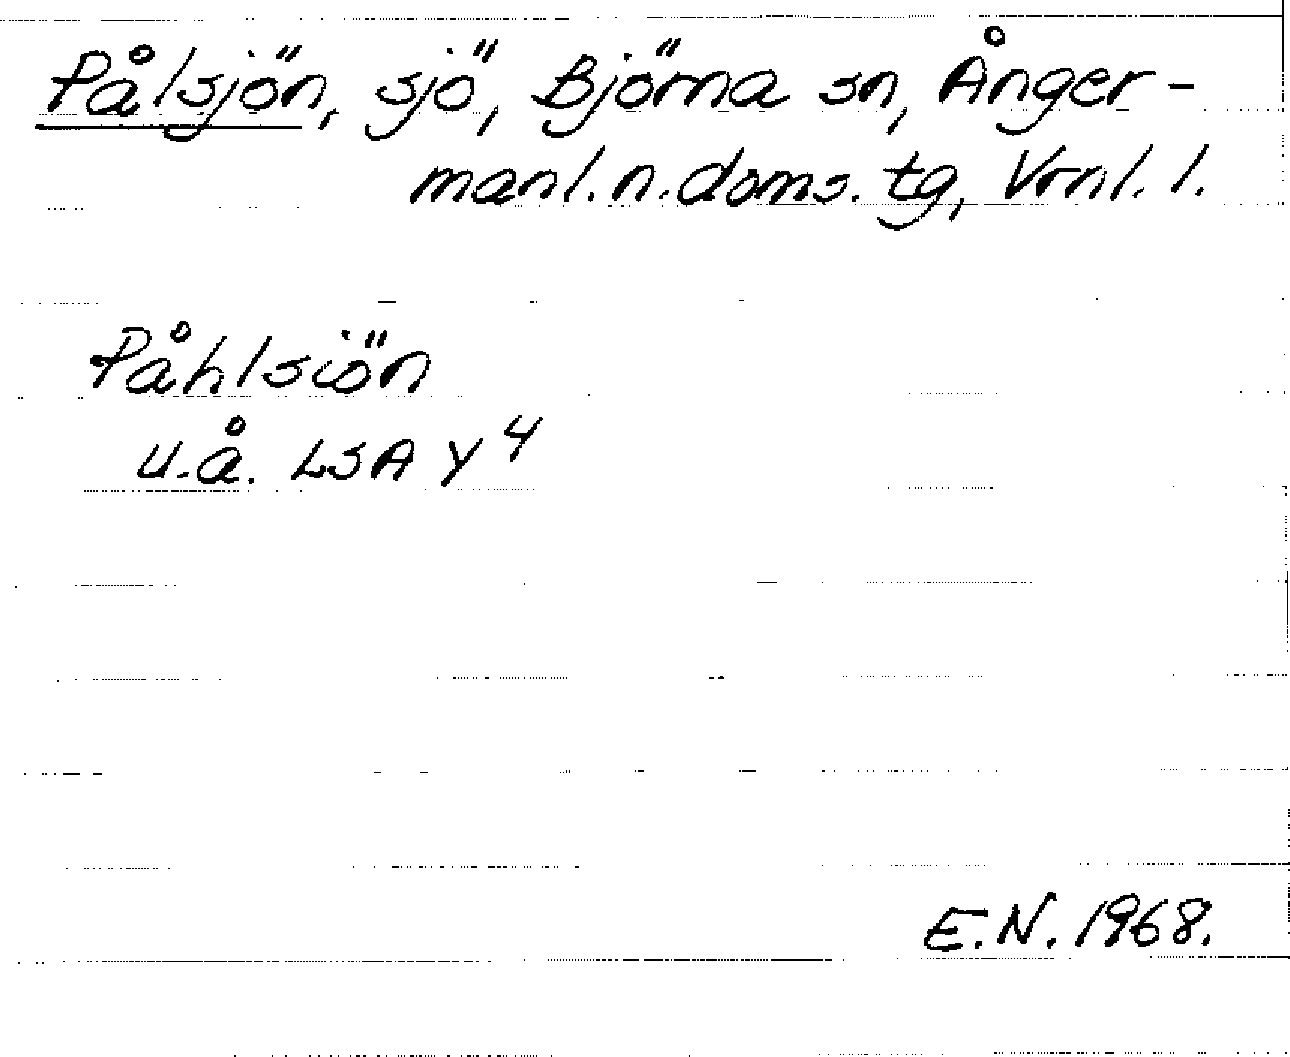 Pålsjön, sjö, Björna sn, Ånger-
manl. n. doms. tg, Vrnl. l.
Påhlsiön
u.å. LSA Y 4
E.N. 1968.